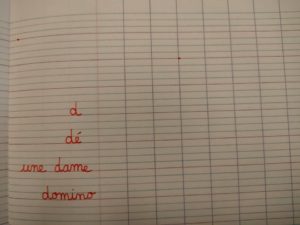 d
dé
une dame
domino